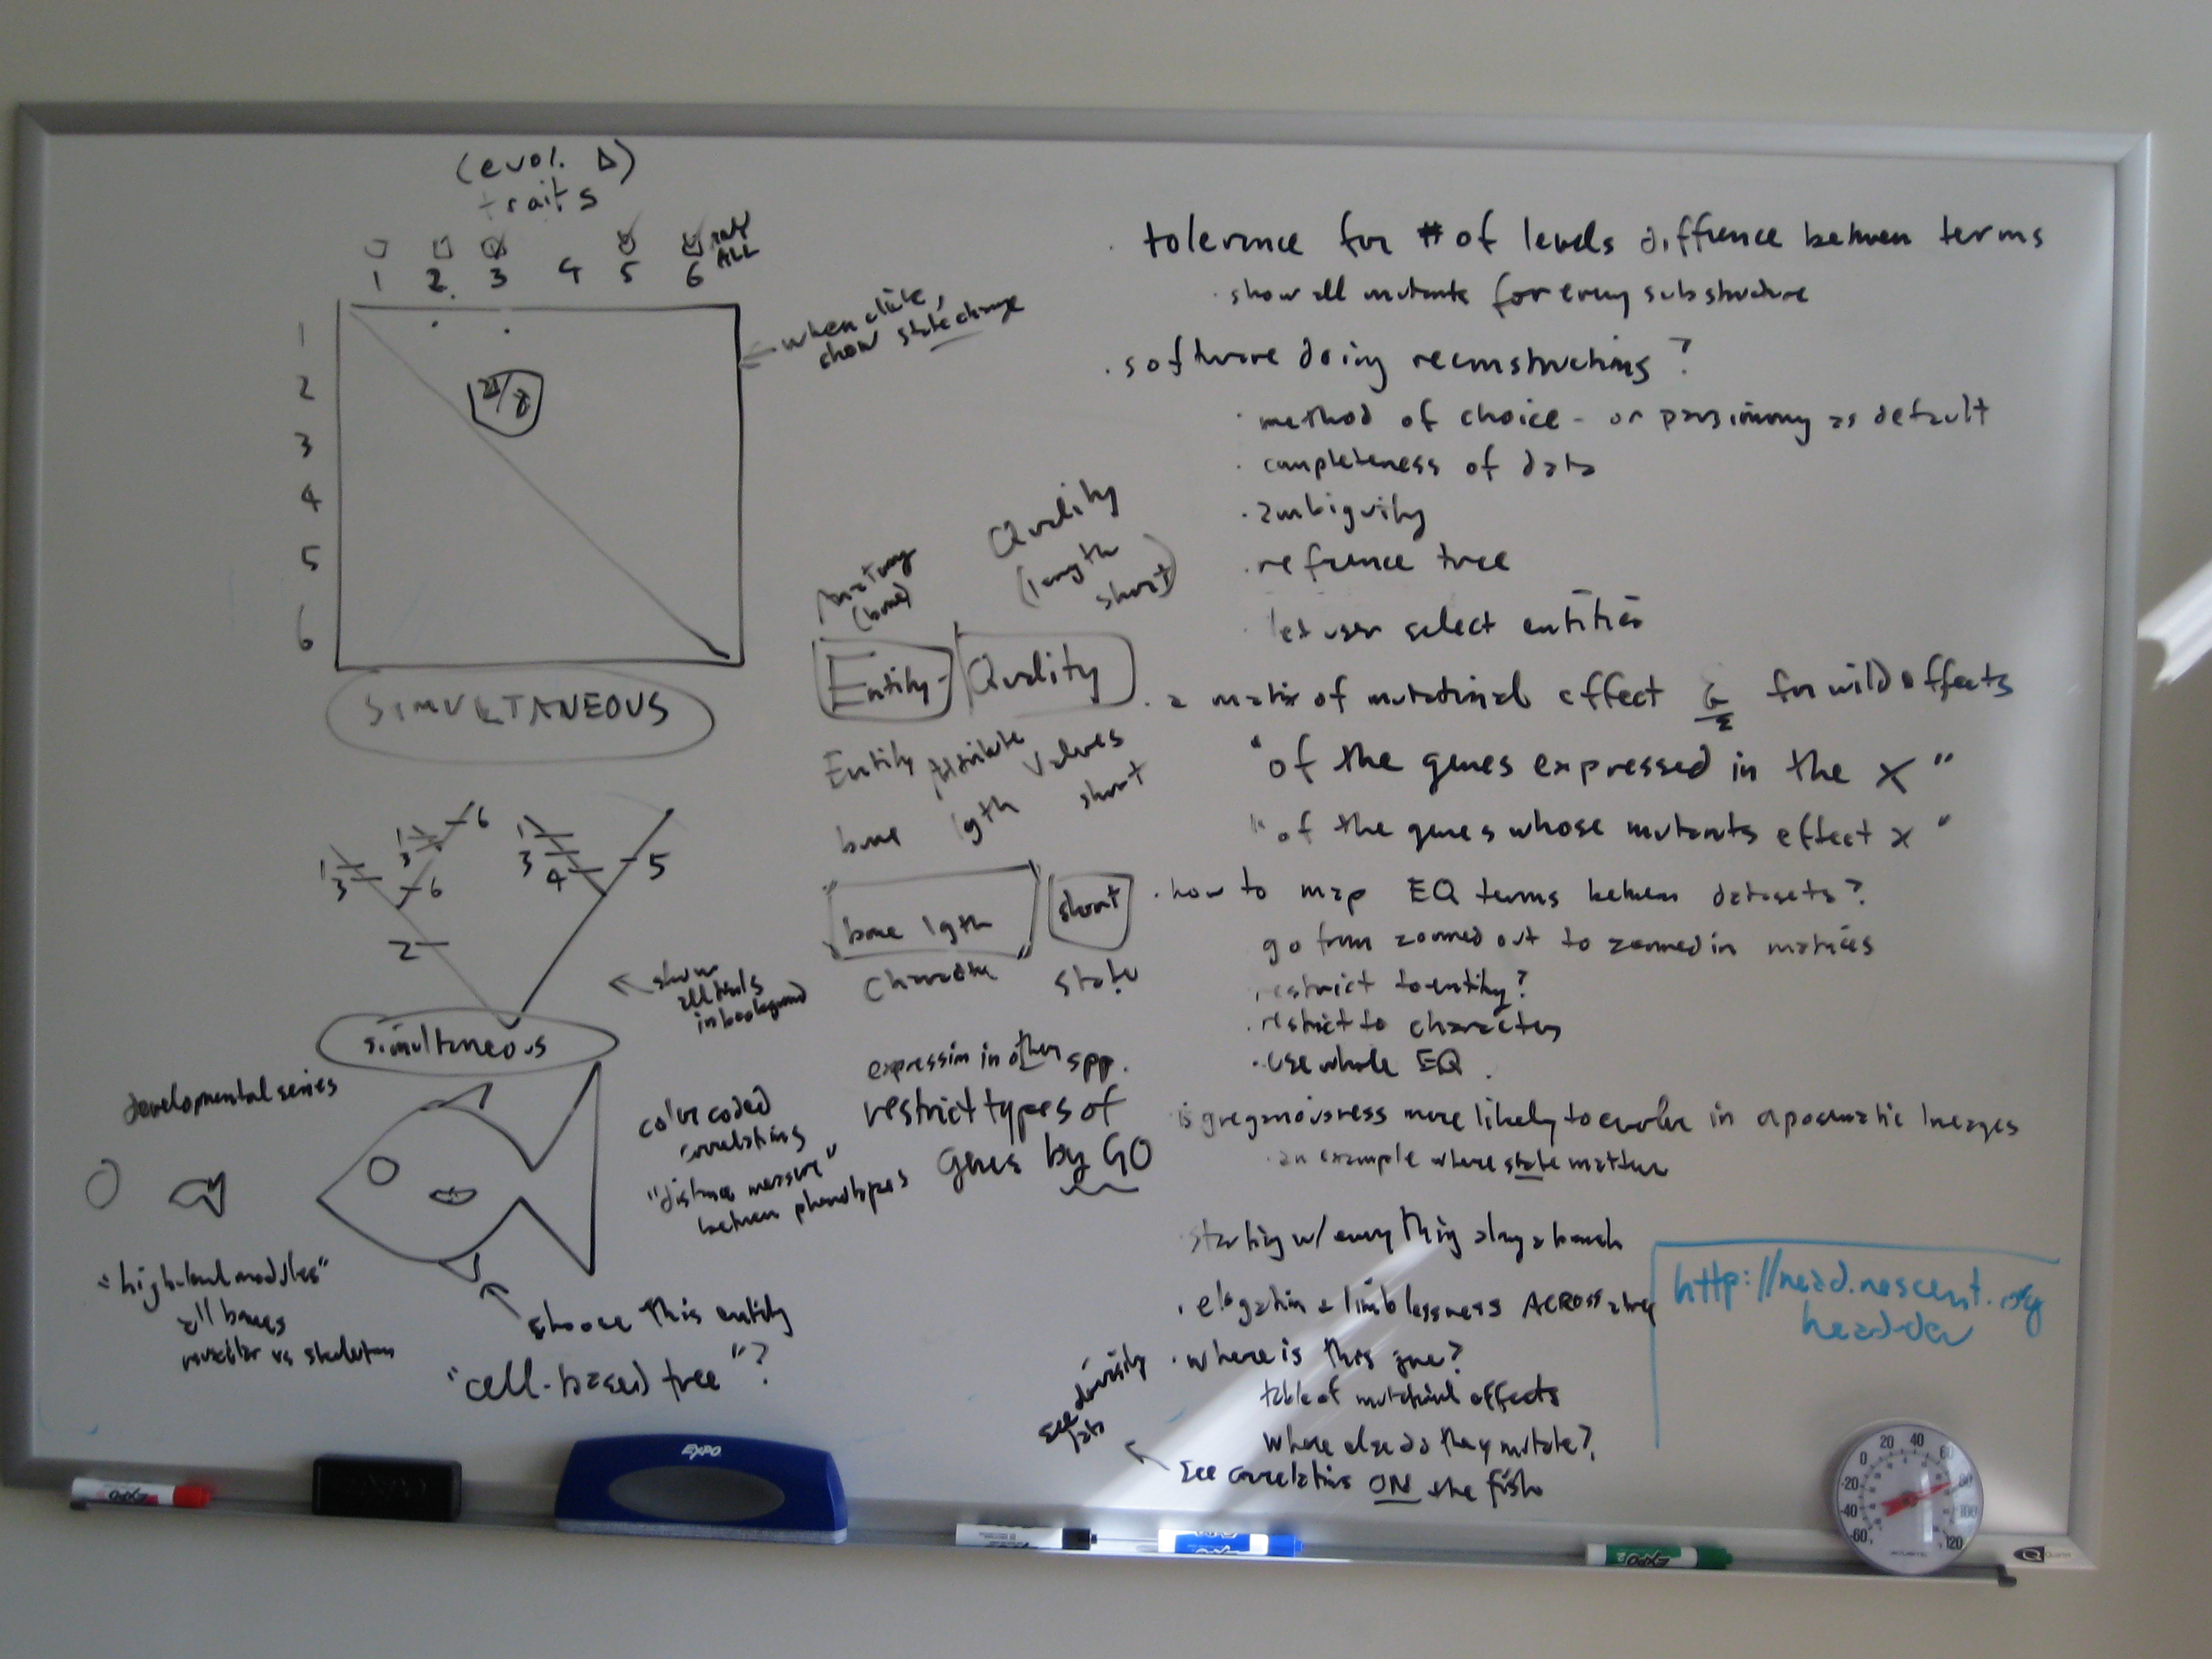 (evol. Δ)
traits
ALL
1 2 3 4 5 6
when click,
show state change
1
2
3
4
5
6
SIMULTANEOUS
1 3 2 6 1 3 6 1 3 4 5
show
all trials
in background
simultaneous
developmental series
"high-level modules"
all bones
vs skeleton
choose this entity
"cell-based tree"?
color coded
correlations
"distance measure"
between phenotypes
Anatomy
(bone)
Quality
(length
short)
Entity- Quality
Entity Attribute Values
bone lgth short
bone lgth short
Character State
expression in other spp.
restrict types of
genes by GO
. tolerance for # of levels diffrence between terms
. show all mutants for every substructure
. software doing reconstructions?
. method of choice - or parsimony as default
. completeness of data
. ambiguity
. refrence tree
. let user select entities
. a matrix of mutational effect & for wild effects
"of the genes expressed in the X"
"of the genes whose mutants effect x"
. how to map EQ terms between datasets?
go from zoomed out to zoomed in matrices
restrict to entity?
. restrict to character
. use whole EQ.
is gregariousness more likely to evolve in aposematic lineages
. an example where state matters
starting w/ everything along a branch
. elogation & limblessness ACROSS a tree
. where is this gene?
table of mutational effects
where else do they mutate?
see correlations ON the fish
see diversity
http://head.nescent.org
head-dev
EXPO
EXPO
EXPO
EXPO
-60 -40 -20 0 20 40 60 80 100 120
Quartet